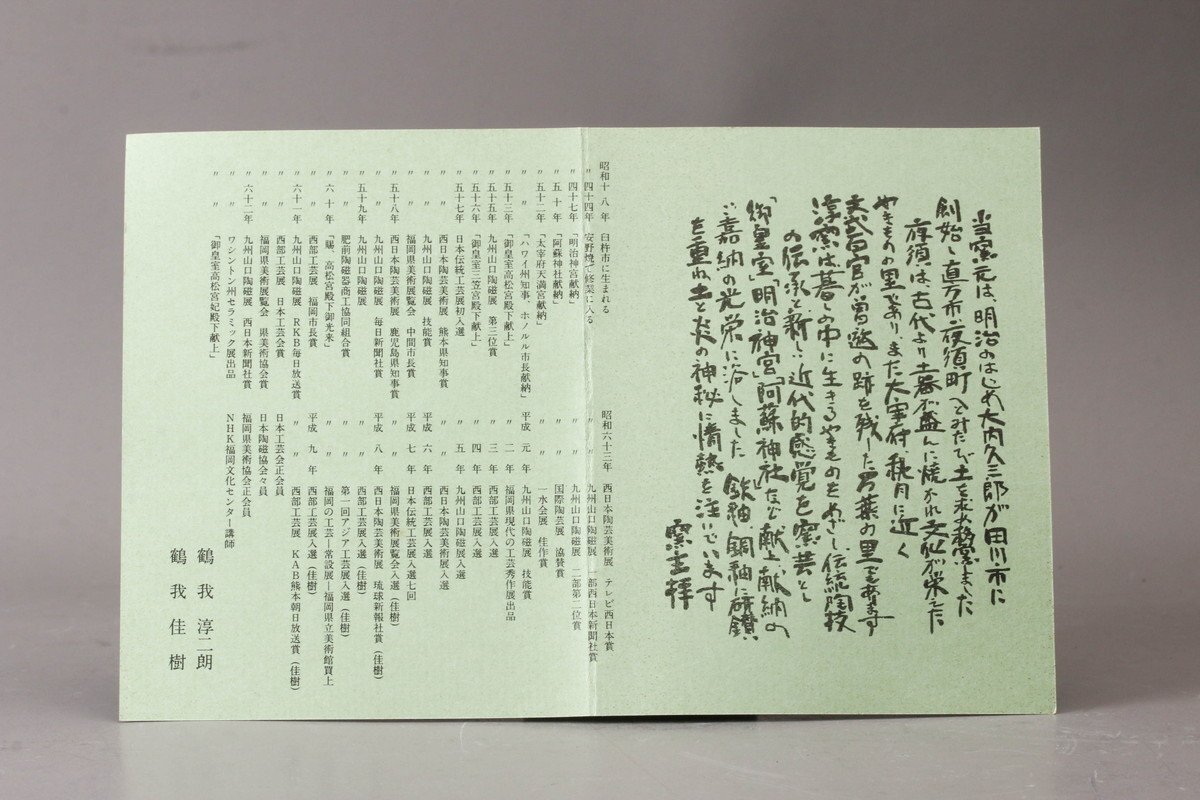 当窯元は、明治のはじめ大内久三郎が田川市に
創始し直方市、夜須町へとみたび土を求め移窯しました
夜須は、古代より土器が盛んに焼かれ文化が栄えた
やきものの里であり、また大宰府、秋月に近く
文武百官が曽遊の跡を残した万葉の里でもあります
淳窯は暮しの中に生きるやきものをめざし、伝統陶技
の伝承と新しい近代的感覚を窯芸とし
「御皇室」「明治神宮」「阿蘇神社」など献上、献納の
ご嘉納の光栄に浴しました 鉄釉、銅釉に研鑽
を重ね土と炎の神秘に情熱を注いでいます
窯主拝
昭和十八年 臼杵市に生まれる
〃 四十四年 安野焼で修業に入る
〃 四十七年 「明治神宮献納」
〃 五十年 「阿蘇神社献納」
〃 五十二年 「太宰府天満宮献納」
〃 〃 「ハワイ州知事、ホノルル市長献納」
〃 五十三年 「御皇室高松宮殿下献上」
〃 五十五年 九州山口陶磁展 第三位賞
〃 五十六年 「御皇室三笠宮殿下献上」
〃 五十七年 日本伝統工芸展初入選
〃 〃 西日本陶芸美術展 熊本県知事賞
〃 〃 九州山口陶磁展 技能賞
〃 〃 福岡県美術展覧会 中間市長賞
〃 五十八年 西日本陶芸美術展 鹿児島県知事賞
〃 〃 九州山口陶磁展 毎日新聞社賞
〃 五十九年 九州山口陶磁展
〃 〃 肥前陶磁器商工協同組合賞
〃 六十年 「賜 高松宮殿下御光来」
〃 〃 西部工芸展 福岡市長賞
〃 六十一年 九州山口陶磁展 RKB毎日放送賞
〃 〃 西部工芸展 日本工芸会賞
〃 〃 福岡県美術展覧会 県美術協会賞
〃 六十二年 九州山口陶磁展 西日本新聞社賞
〃 〃 ワシントン州セラミック展出品
〃 〃 「御皇室高松宮妃殿下献上」
昭和六十三年 西日本陶芸美術展 テレビ西日本賞
〃 〃 九州山口陶磁展 一部西日本新聞社賞
〃 〃 九州山口陶磁展 二部第二位賞
〃 〃 国際陶芸展 協賛賞
〃 〃 一水会展 佳作賞
平成元年 九州山口陶磁展 技能賞
〃 二年 福岡県現代の工芸秀作展出品
〃 三年 西部工芸展入選
〃 四年 西部工芸展入選
〃 五年 九州山口陶磁展入選
〃 〃 西日本陶芸美術展入選
平成六年 西部工芸展入選
平成七年 日本伝統工芸展入選七回
〃 〃 福岡県美術展覧会入選(佳樹)
平成八年 西日本陶芸美術展 琉球新報社賞(佳樹)
〃 〃 西部工芸展入選(佳樹)
〃 〃 第一回アジア工芸展入選(佳樹)
〃 〃 福岡の工芸―常設展―福岡県立美術館買上
平成九年 西部工芸展入選(佳樹)
〃 〃 西部工芸展 KAB熊本朝日放送賞(佳樹)
日本工芸会正会員
日本陶磁協会々員
福岡県美術協会正会員
NHK福岡文化センター講師
鶴我淳二朗
鶴我佳樹